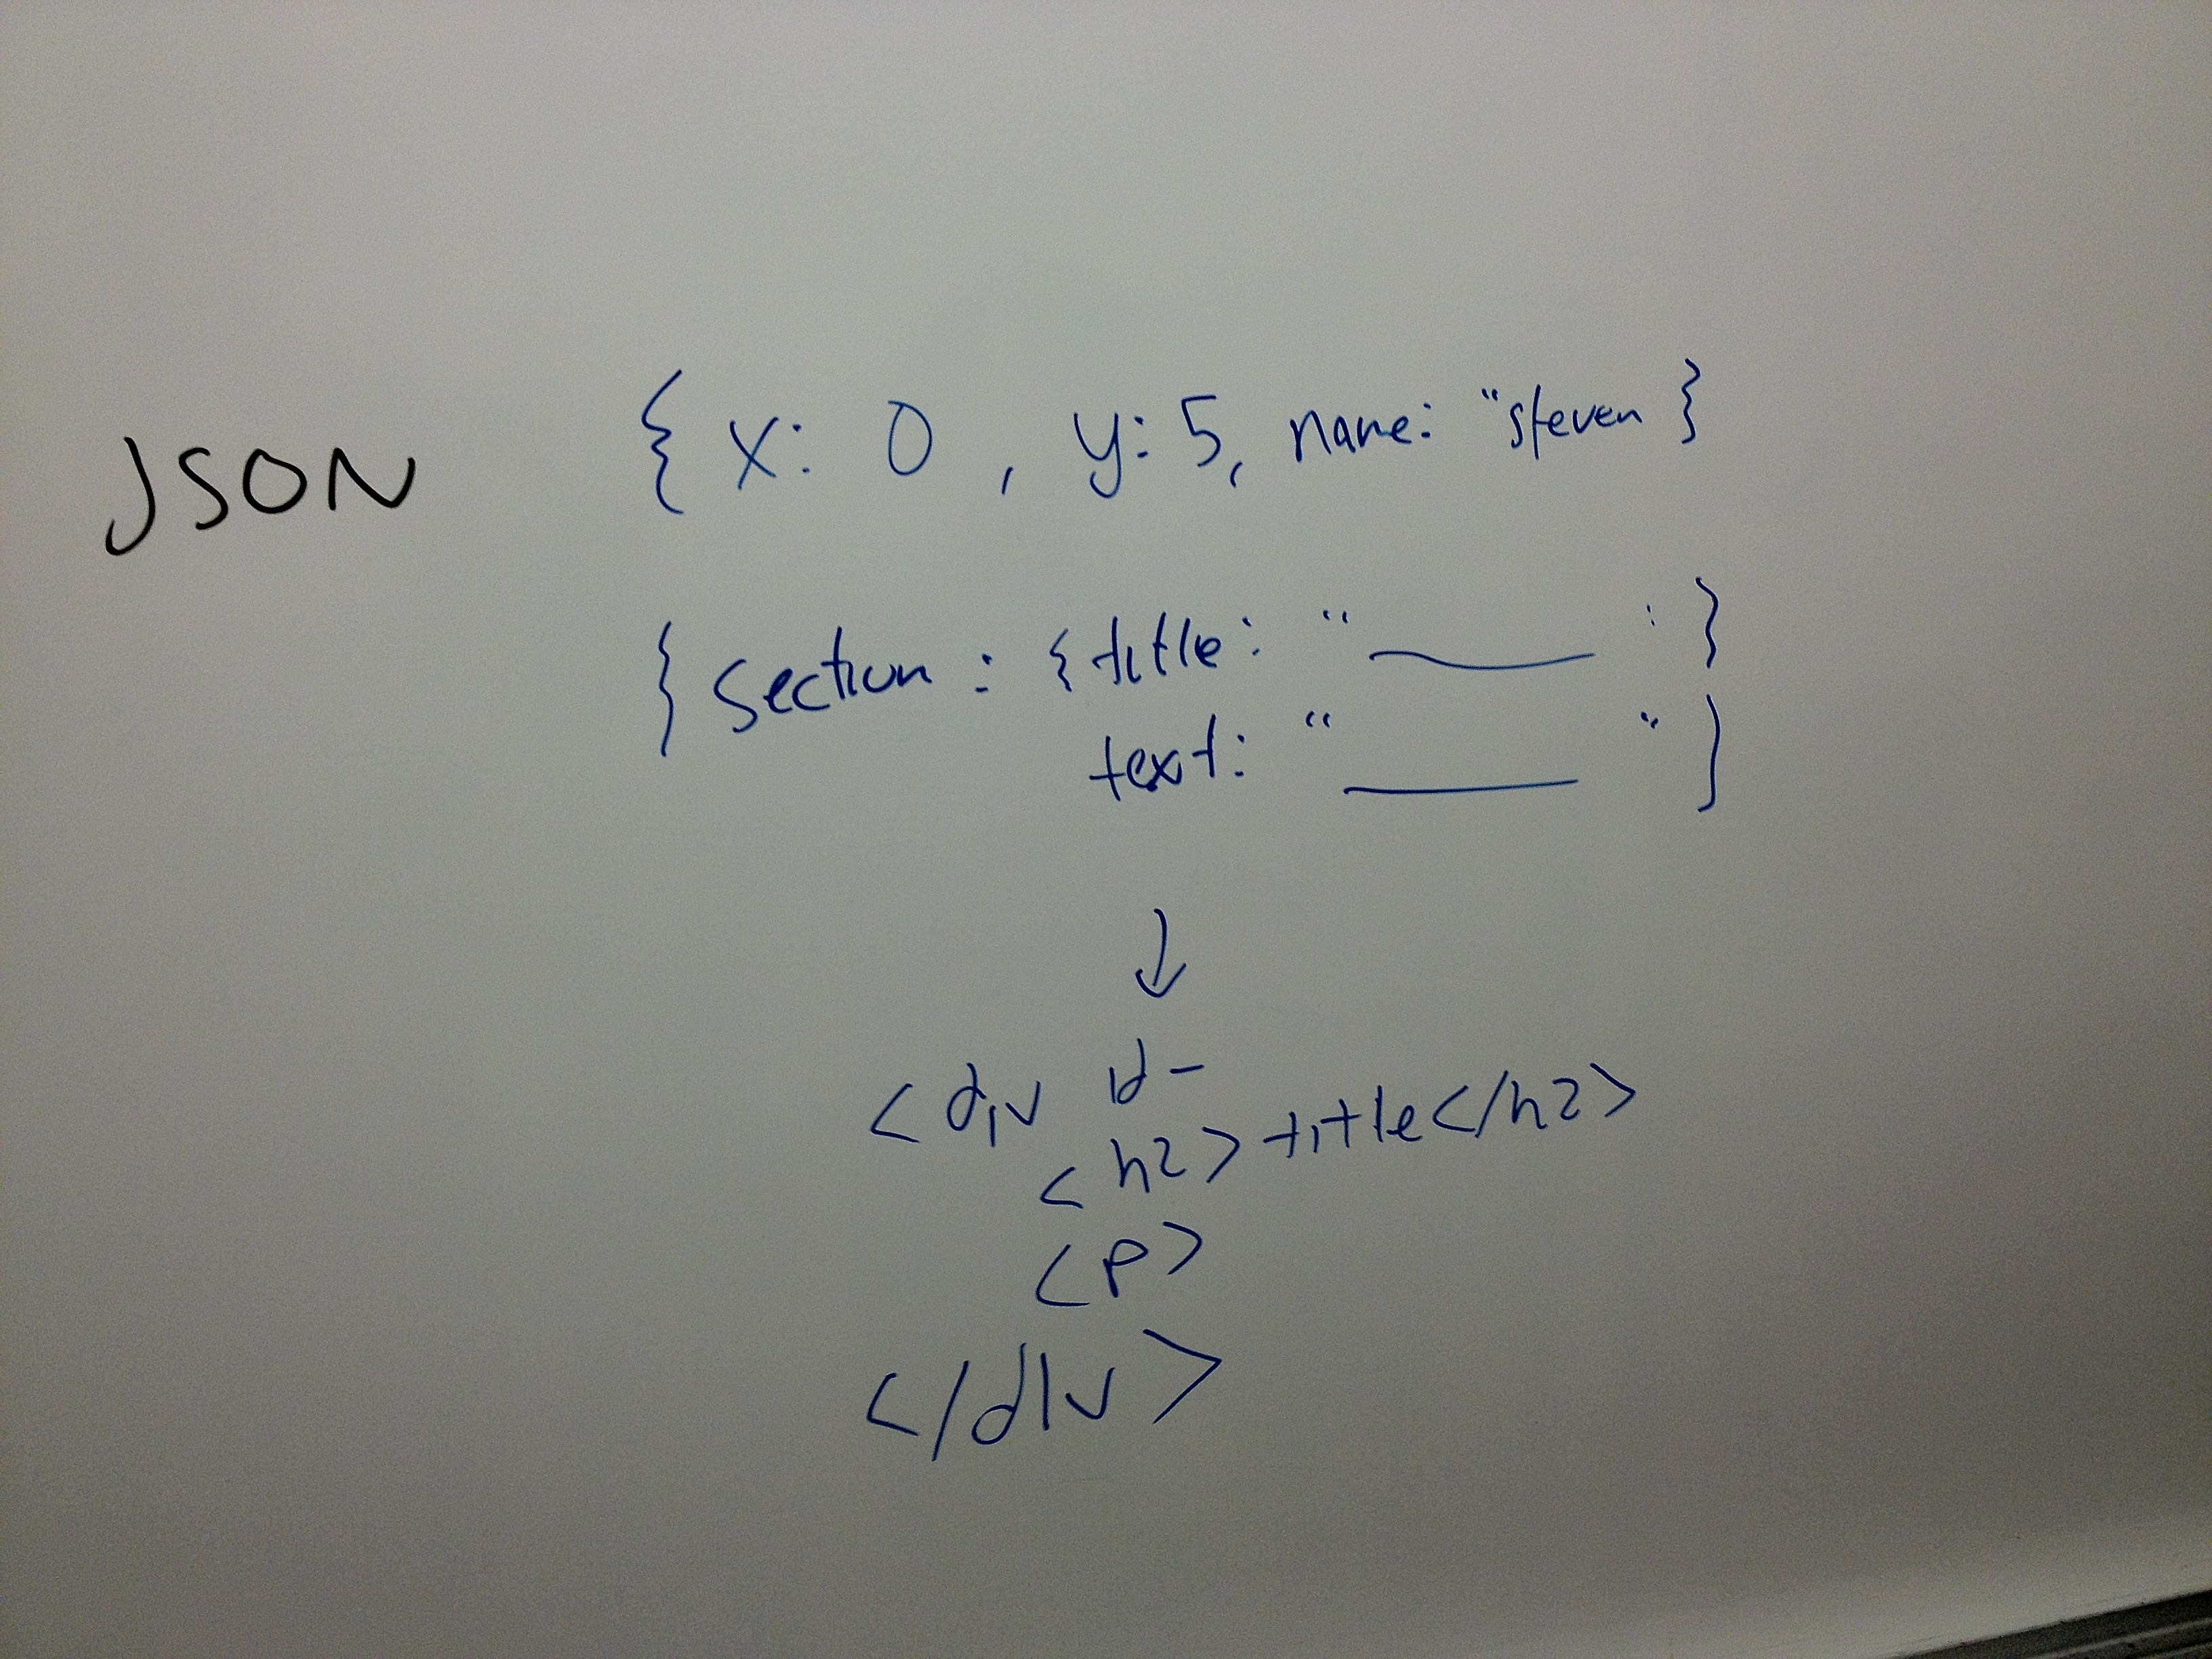 JSON
{ x: 0 , y: 5, name: "steven }
{ section : { title: " ______ ' }
text: " ______ " }
↓
<div id-
<h2>title</h2>
<p>
</div>